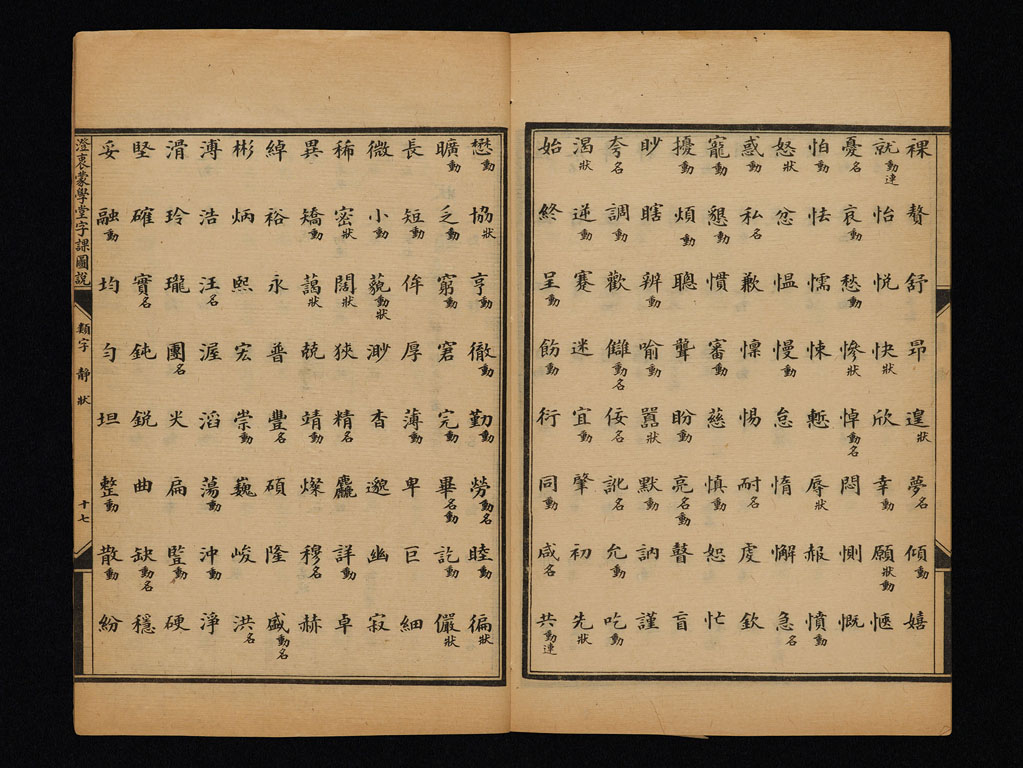 裸贅舒昻遑狀夢名傾動嬉
就動連怡悅快狀欣幸動願狀動愜
憂名哀動愁動慘狀悼動名悶惻慨
怕動怯懦悚慙辱狀赧憤動
怒狀忿愠慢動怠惰懈急名
惑動私名歉懍惕耐名虔欽
寵動懇動慣審動慈慎動恕忙
擾動煩動聰聾盼動亮名動瞽盲
眇瞎辨動喻動嚚狀默動訥謹
夸名調動歡讎動名佞名訛名允動吃動
渴狀逆蹇迷宜動肇初先狀
始終呈動飭動衍同動咸名共動連
懋動協狀亨動徹動勤動勞動名睦動徧狀
曠動乏動窮動窘完動畢名動訖動儼狀
長短動侔厚薄動卑巨細
微動小動藐動狀渺杳邈幽寂
稀密狀闊狀狹精名麤詳動卓
異矯動藹狀兢靖動燦穆名赫
綽裕永普豐名碩隆戚動名
彬炳熙宏崇動巍峻洪名
溥浩汪名渥滔蕩動沖動淨
滑玲瓏團名尖扁竪動硬
堅確實名鈍銳曲缺動名穩
妥融動均勻坦整動散動紛
澄衷蒙學堂字課圖說
類字 靜狀
十七